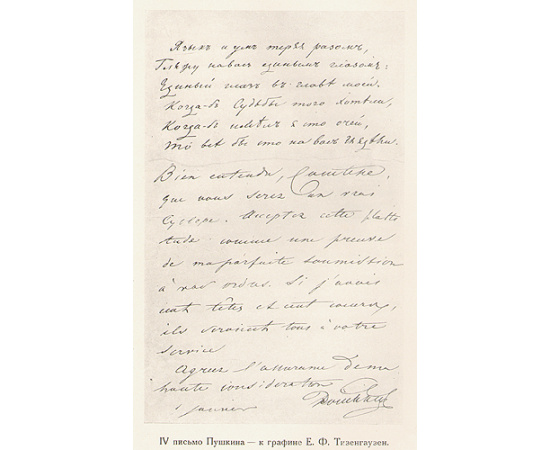 Языкъ и умъ теряя разомъ,
Гляжу на васъ единымъ глазомъ:
Единый глазъ въ главѣ моей.
Когда-бъ Судьбы того хотѣли,
Когда-бъ имѣлъ я сто очей,
То всѣ бы сто на васъ глядѣли.
Bien entendu, Comtesse,
que vous serez un vrai
Cyclope. Acceptez cette plati-
tude comme une preuve
de ma parfaite soumission
à vos ordres. Si j'avais
cent têtes et cent cœurs,
ils seraient tous à votre
service
Agréez l'assurance de ma
haute considération
Pouchkine
1 janvier
IV письмо Пушкина — к графине Е. Ф. Тизенгаузен.